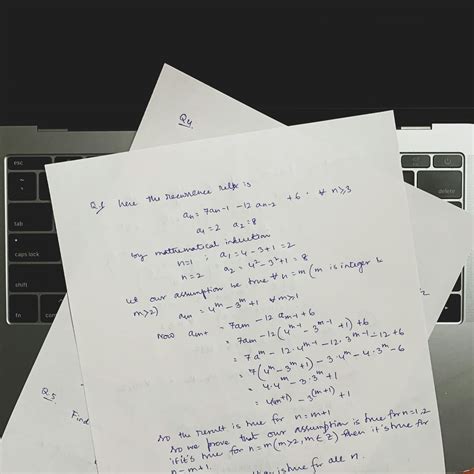 Q4.
esc
tab
caps lock
shift
delete
Q3 here the recurrence reltn is
an = 7an-1 - 12 an-2 + 6 : ∀ n≥3
a1=2 a2=8
by mathematical induction
n=1 : a1 = 4-3+1 = 2
n=2 a2 = 4²-3²+1 = 8
let our assumption be true ∀ n=m (m is integer &
m≥2) am = 4^m - 3^m + 1 ∀ m≥1
Now am+1 = 7am - 12 am-1 + 6
= 7am - 12(4^m-1 - 3^m-1 + 1) + 6
= 7a^m - 12·4^m-1 - 12·3^m-1 - 12 + 6
= 7(4^m - 3^m + 1) - 3·4^m - 4·3^m - 6
= 4·4^m - 3·3^m + 1
= 4^(m+1) - 3^(m+1) + 1
so the result is true for n=m+1
so we prove that our assumption is true for n=1,2
if it's true for n=m (m>2, m∈Z) then it's true for
n=m+1.
is true for all n.
Q5
Find